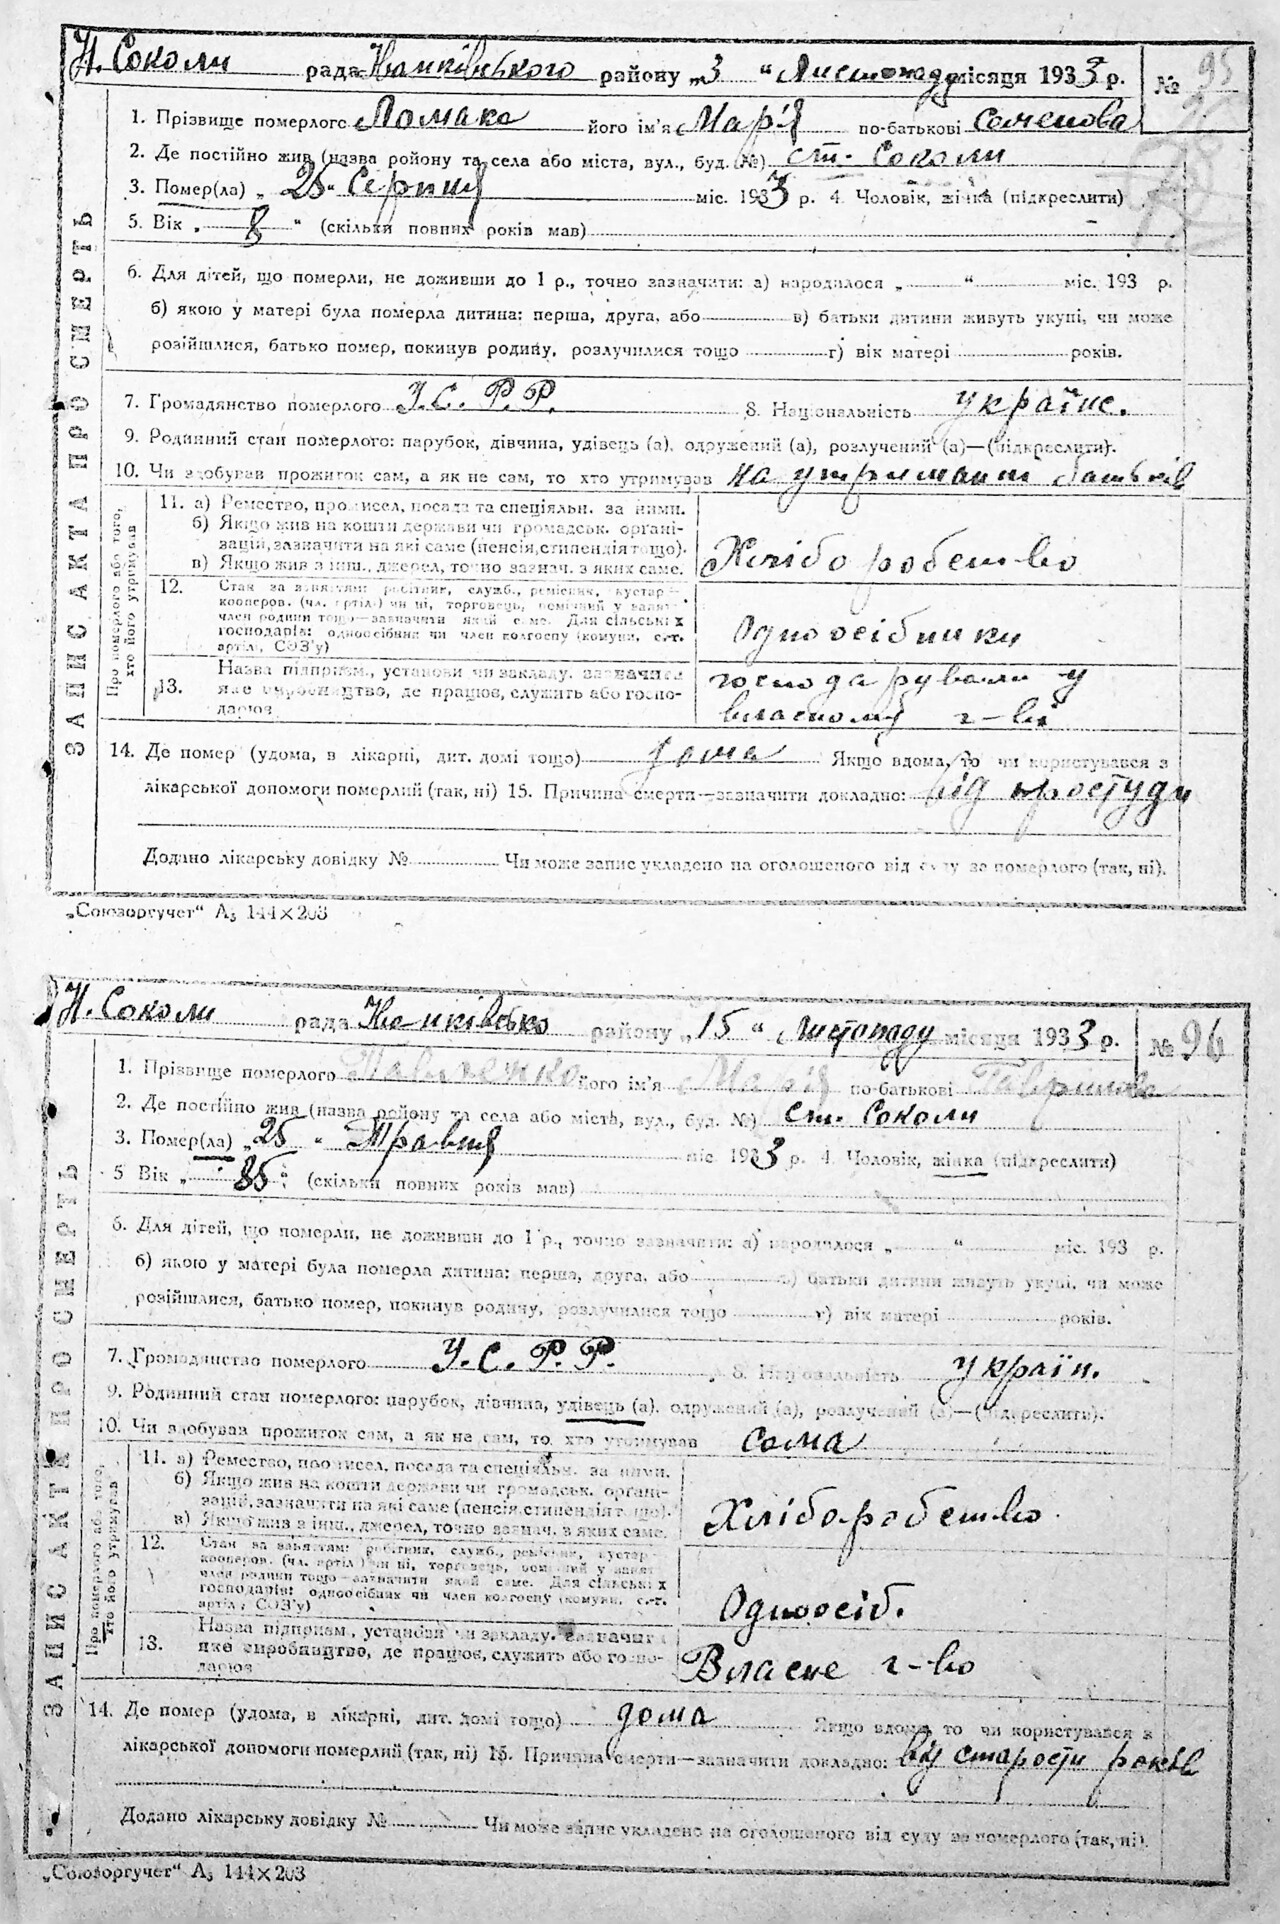 Н. Соколи рада Іванківського району „3 “ Листопаду місяця 1933 р. № 95
1. Прізвище померлого Ломака його ім'я Марія по-батькові Семенова
2. Де постійно жив (назва ройону та села або міста, вул., буд. №) ст. Соколи
3. Помер(ла) „ 25 “ Серпня міс. 1933 р. 4. Чоловік, жінка (підкреслити)
5. Вік „ 8 “ (скільки повних років мав)
6. Для дітей, що померли, не доживши до 1 р., точно зазначити: а) народилося „ “ міс. 193 р.
б) якою у матері була померла дитина: перша, друга, або в) батьки дитини живуть укупі, чи може
розійшлися, батько помер, покинув родину, розлучилися тощо г) вік матері років.
7. Громадянство померлого У.С.Р.Р. 8. Національність україне.
9. Родинний стан померлого: парубок, дівчина, удівець (а), одружений (а), розлучений (а)—(підкреслити).
10. Чи здобував прожиток сам, а як не сам, то хто утримував на утриманні батьків
ЗАПИС АКТА ПРО СМЕРТЬ
Про померлого або того, хто його утримував
11. а) Ремество, промисел, посада та спеціяльн. за ними.
б) Якщо жив на кошти держави чи громадськ. органі-
зацій, зазначити на які саме (пенсія, стипендія тощо).
в) Якщо жив з інш., джерел, точно зазнач. з яких саме.
Хлібо робство
12. Стан за заняттям: робітник, служб., ремісник, кустар
кооперов. (чл. артіл.) чи ні, торговець, помічний у занят.
член родини тощо—зазначити який саме. Для сільських
господарів: одноосібник чи член колгоспу (комуни, с.-г.
артілі, СОЗ'у)
Одноосібники
13. Назва підприєм., установи чи закладу, зазначити
яке виробництво, де працює, служить або госпо-
дарює
господарували у
власному г-ві
14. Де помер (удома, в лікарні, дит. домі тощо) дома Якщо вдома, то чи користувався з
лікарської допомоги померлий (так, ні) 15. Причина смерти—зазначити докладно: від простуди
Додано лікарську довідку № Чи може запис укладено на оголошеного від суду за померлого (так, ні).
„Союзоргучет“ А5 144×203
Н. Соколи рада Іванківсько району „ 15 “ Листопаду місяця 1933 р. № 96
1. Прізвище померлого Павленко його ім'я Марія по-батькові Гаврилова
2. Де постійно жив (назва ройону та села або міста, вул., буд. №) ст. Соколи
3. Помер(ла) „ 25 “ Травня міс. 1933 р. 4. Чоловік, жінка (підкреслити)
5 Вік „ 85 “ (скільки повних років мав)
6. Для дітей, що померли, не доживши до 1 р., точно зазначити: а) народилося „ “ міс. 193 р.
б) якою у матері була померла дитина: перша, друга, або в) батьки дитини живуть укупі, чи може
розійшлися, батько помер, покинув родину, розлучилися тощо г) вік матері років.
7. Громадянство померлого У.С.Р.Р. 8. Національність україн.
9. Родинний стан померлого: парубок, дівчина, удівець (а), одружений (а), розлучений (а)—(підкреслити).
10. Чи здобував прожиток сам, а як не сам, то хто утримував сама
ЗАПИС АКТА ПРО СМЕРТЬ
Про померлого або того, хто його утримував
11. а) Ремество, промисел, посада та спеціяльн. за ними.
б) Якщо жив на кошти держави чи громадськ. органі-
зацій, зазначити на які саме (пенсія, стипендія тощо).
в) Якщо жив з інш., джерел, точно зазнач. з яких саме.
Хліборобство
12. Стан за заняттям: робітник, служб., ремісник, кустар
кооперов. (чл. артіл.) чи ні, торговець, помічний у занят.
член родини тощо—зазначити який саме. Для сільських
господарів: одноосібник чи член колгоспу (комуни, с.-г.
артілі, СОЗ'у)
Одноосіб.
13. Назва підприєм., установи чи закладу, зазначити
яке виробництво, де працює, служить або госпо-
дарює
Власне г-во
14. Де помер (удома, в лікарні, дит. домі тощо) дома Якщо вдома, то чи користувався з
лікарської допомоги померлий (так, ні) 15. Причина смерти—зазначити докладно: від старости років
Додано лікарську довідку № Чи може запис укладено на оголошеного від суду за померлого (так, ні).
„Союзоргучет“ А5 144×203